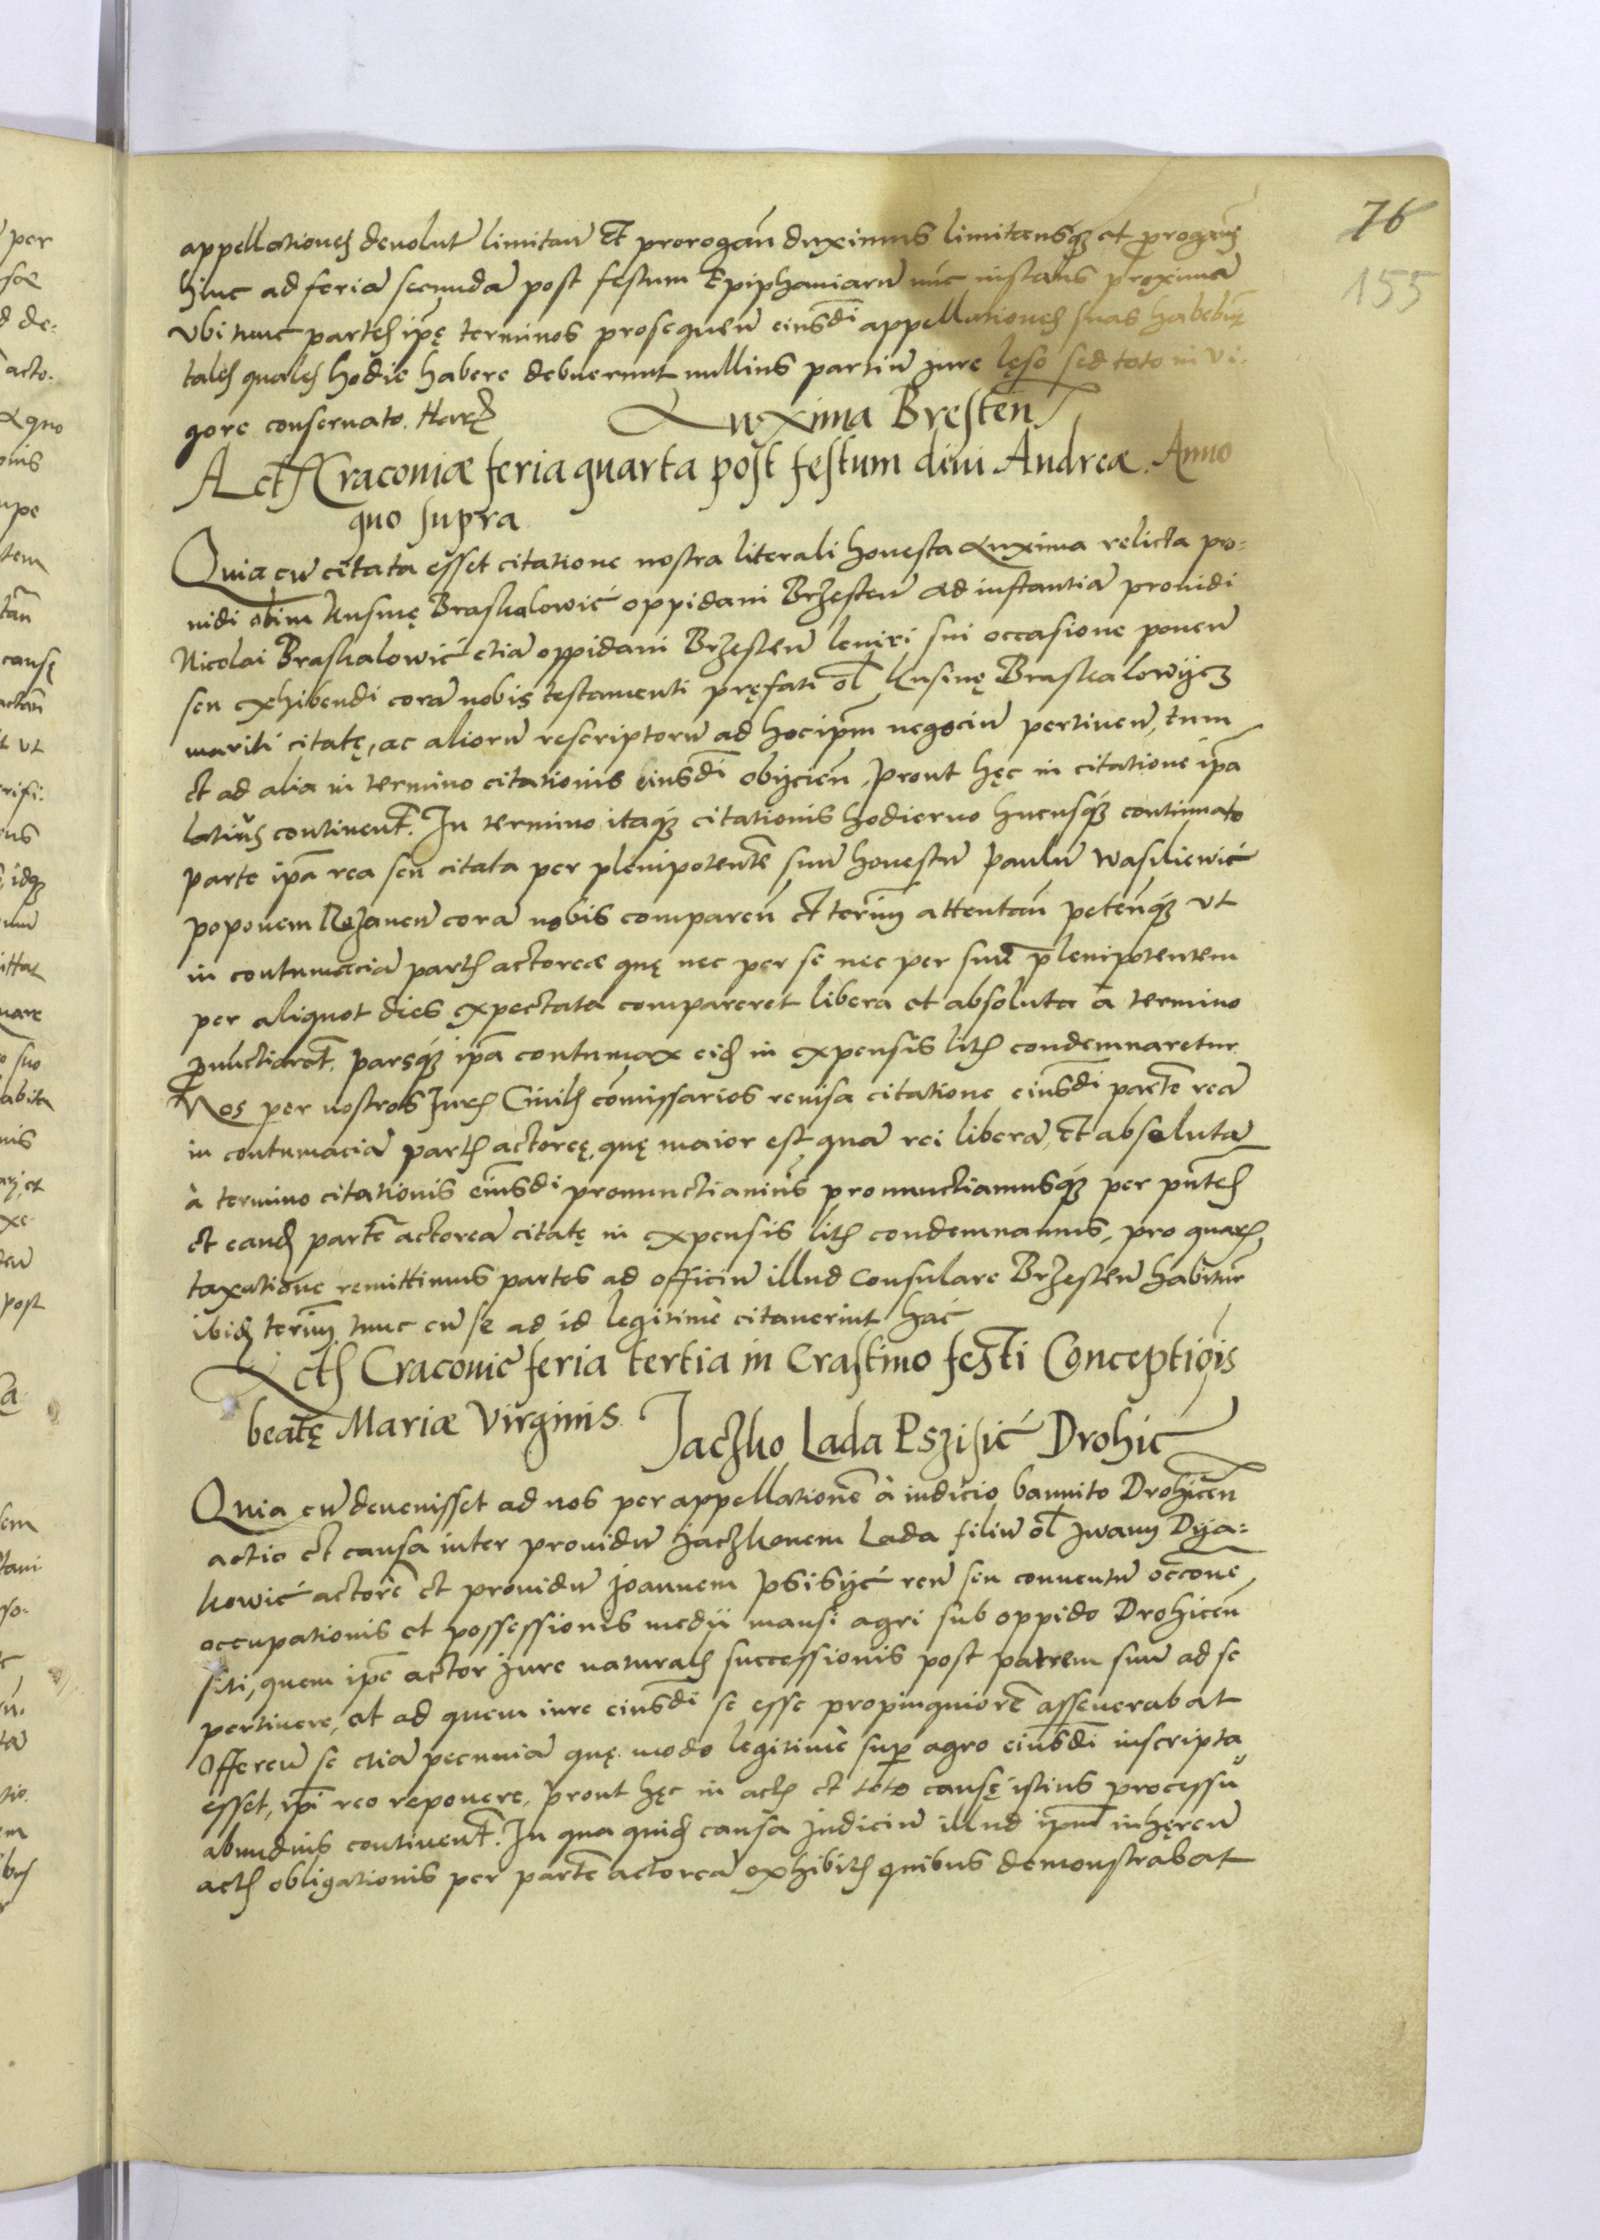 76
155
appellationes deuolut limitan̄ et prorogan̄ duximus limitamusq̃ et progam̃
hinc ad feriā secundā post festum Epiphaniarū nūc instans proximā
vbi tunc partes ip̄ę terminos prosequen̄ eiusdī appellationes suas habebūt
tales quales hodie habere debuerunt nullius partiū iure lęso sed toto in vi-
gore conseruato. Har̄
Luxima Bresteń
Act Cracoviæ feria quarta post festum diui Andreæ. Anno
quo supra
Quia cū citata esset citatione nostra literali honesta Luxima relicta pro-
uidi olim Kusmę Braskalowić oppidani Brzesteń ad instantiā prouidi
Nicolai Braskalowić etiā oppidani Brzesteń leuiri sui occasione ponen̄
seu exhibendi corā nobis testamenti pręfati ol̄ Kusmę Braskalowÿcz
mariti citatę, ac aliorū rescriptorū ad hoc ipm̄ negociū pertineń, tum
et ad alia in termino citationis eiusdī obijcień, prout hęc in citatione ipā
latius continent̄. In termino itaq̃ citationis hodierno hucusq̃ continuato
parte ipā rea seu citata per plenipotentē suū honestū Paulū Wasiliewić
poponem Rozaneń corā nobis compareń et terim̄ attentań peteńq̃ vt
in contumaciā partis actoreæ quę nec per se nec per suū plenipotentem
per aliquot dies expectata compareret libera et absoluta à termino
pnuńctiaret̄. parsq̃ ipā contumax eid in expensis litis condemnaretur
Nos per nostros Juris Ciuilis cōmissarios reuisa citatione eiusdī partē reā
in contumaciā partis actoreę, quę maior est quā rei liberā, et absolutā
à termino citationis eiusdī pronunctiauim̄s pronunctiamusq̃ per pūtes
et eand partē actoreā citatę in expensis litis condemnamus, pro quar
taxatione remittimus partes ad officiū illud Consulare Brzesteń habitur̄
ibid terim̄ tunc cū se ad id legitimè citauerint hać
Act Cracovię feria tertia in Crastino festi Conceptiōis
beatę Mariæ Virginis.
Jaczko Lada Pszisić Drohić
Quia cū deuenisset ad nos per appellationē à iudicio bannito Drohiceń
actio et causa inter prouidū Jaczkonem Lada filiū ol̄ Jwany Dya-
kowić actorē et prouidū Joannem Psisyć reū seu conuentū occōne
occupationis et possessionis medii mansi agri sub oppido Drohiceń
siti, quem ipē actor iure naturalis successionis post patrem suū ad se
pertinere, et ad quem iure eiusdī se esse propinquiorē asseuerabat
offereń se etiā pecuniā quę modo legitimè sup̄ agro eiusdī inscripta
esset, ipī reo reponere, prout hęc in actis et toto causę istius processu
abundius continent̄. In qua quid causa judiciū illud ipm̄ inhęreń
actis obligationis per partē actoreā exhibitis quibus demonstrabat